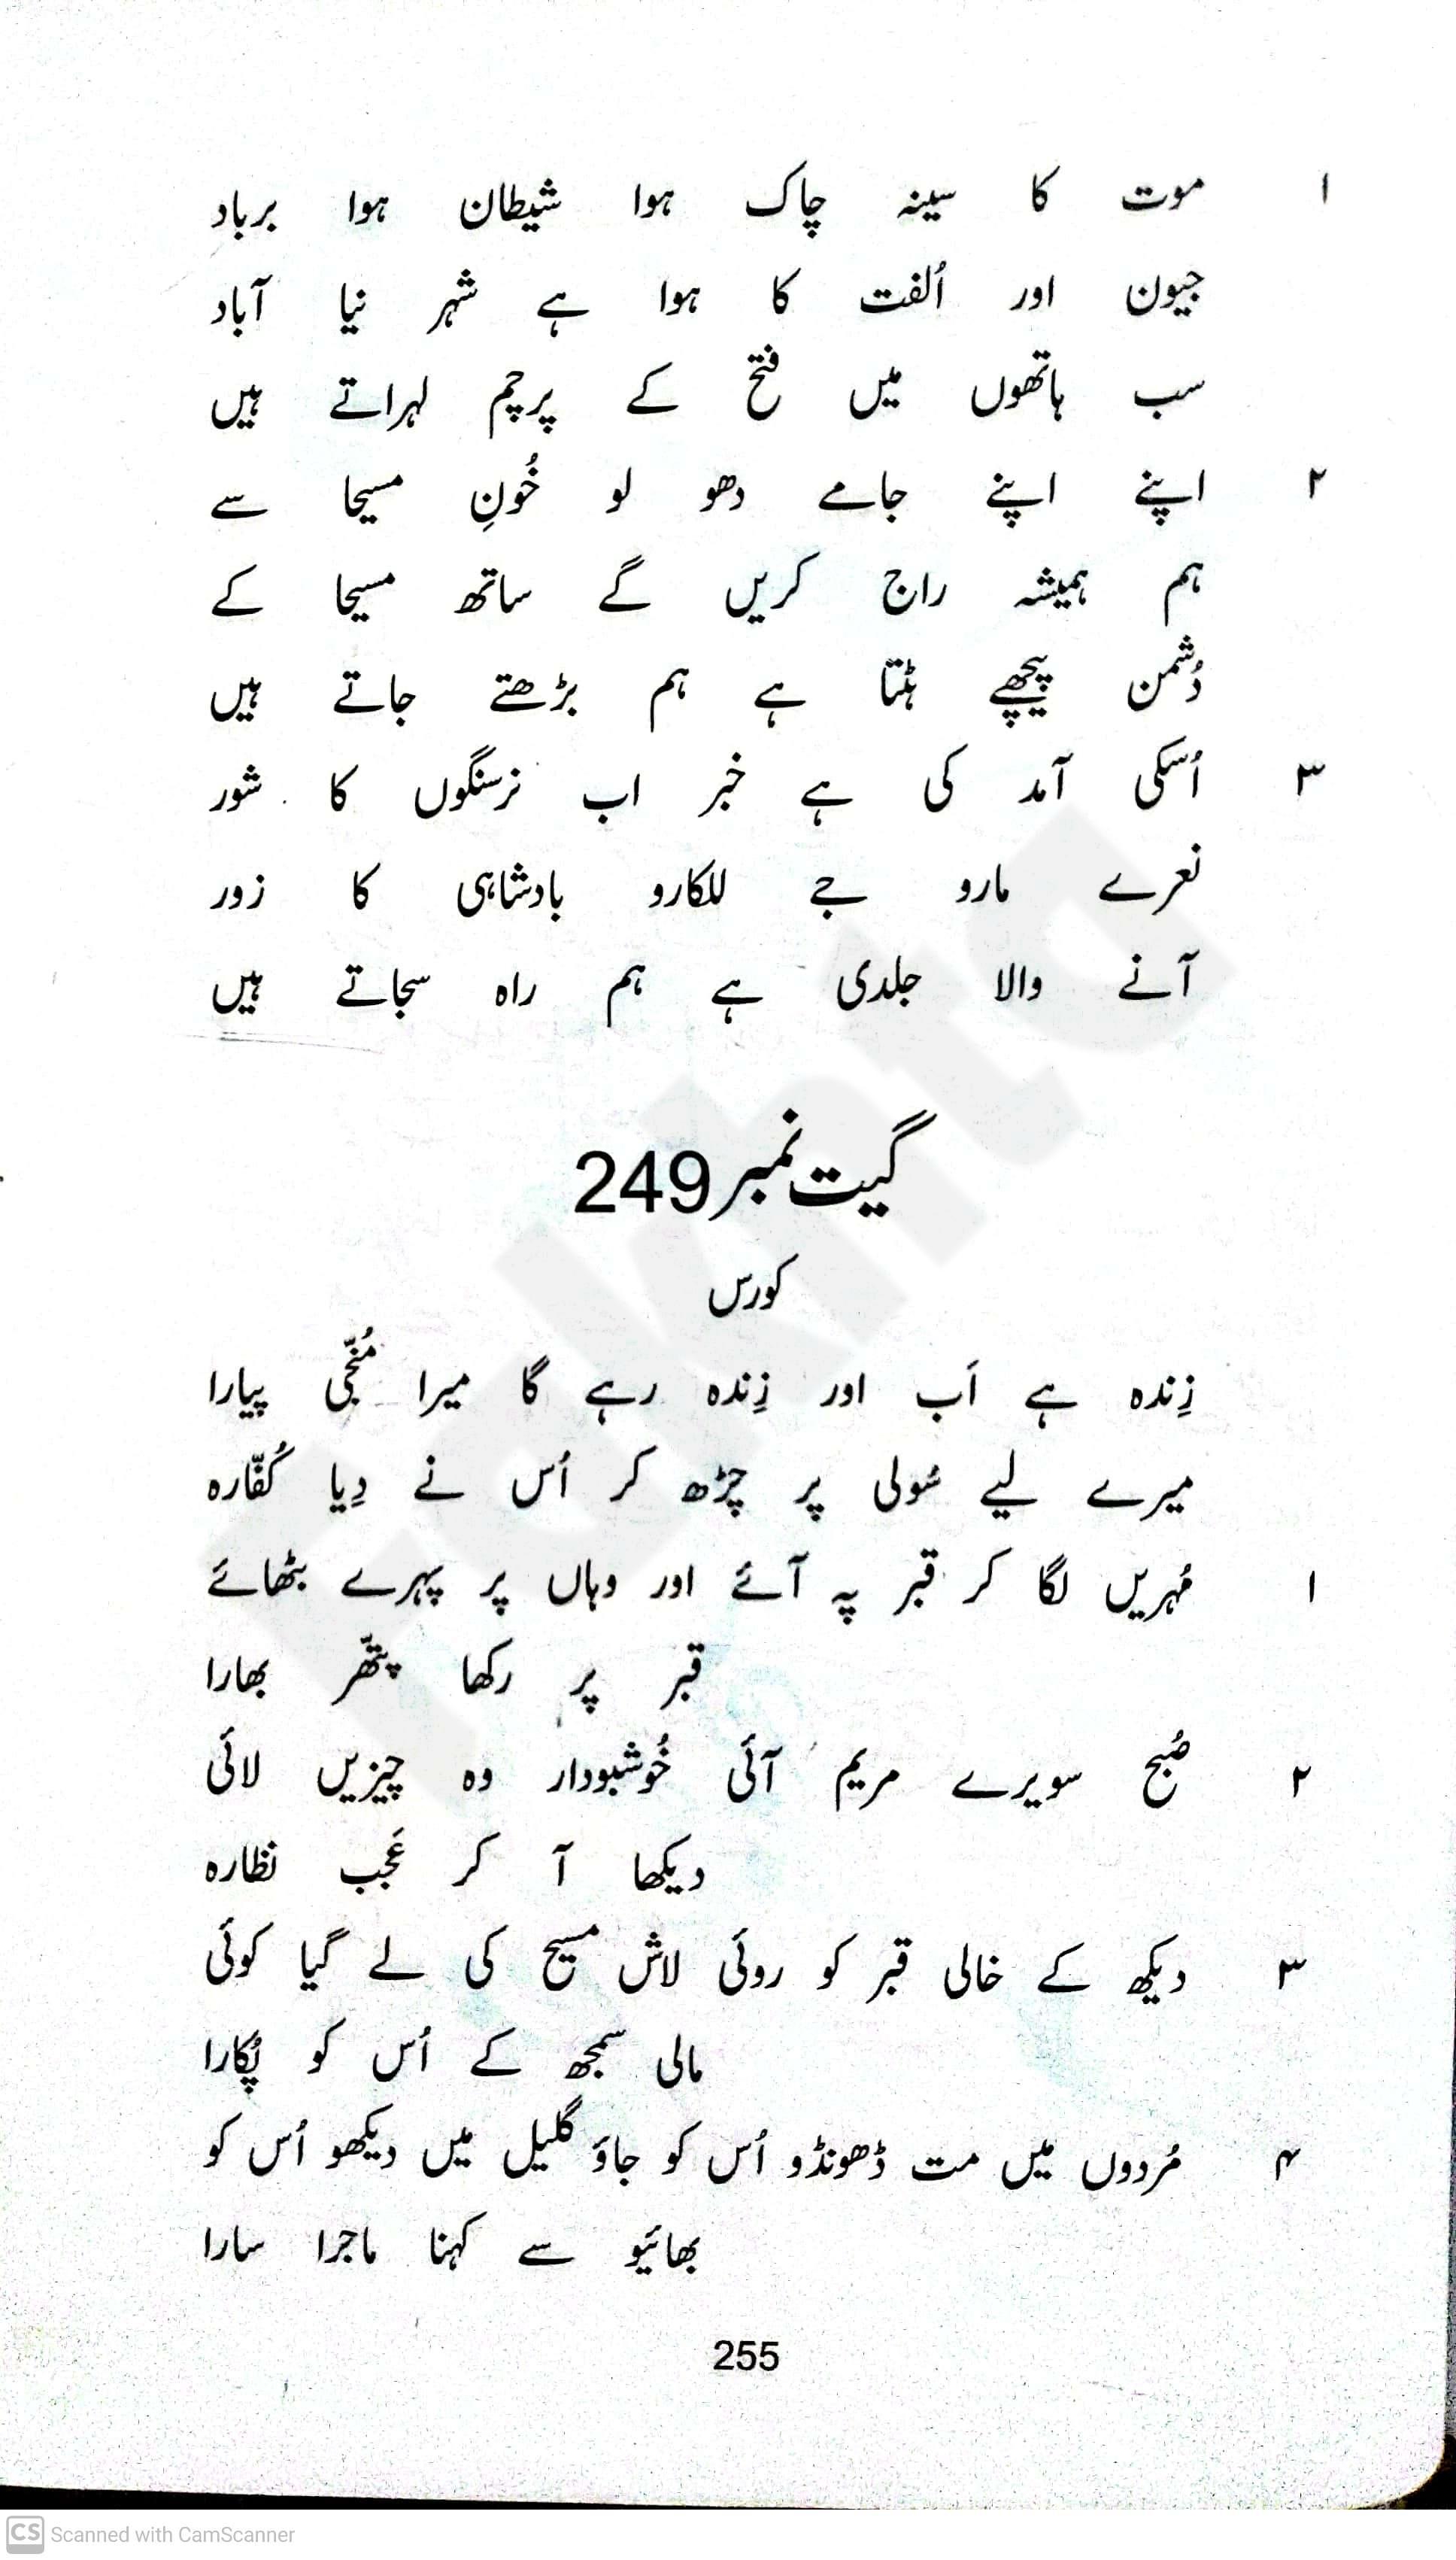 ۱ موت کا سینہ چاک ہوا شیطان ہوا برباد
جیون اور اُلفت کا ہوا ہے شہر نیا آباد
سب ہاتھوں میں فتح کے پرچم لہراتے ہیں
۲ اپنے اپنے جامے دھو لو خُونِ مسیحا سے
ہم ہمیشہ راج کریں گے ساتھ مسیحا کے
دُشمن پیچھے ہٹتا ہے ہم بڑھتے جاتے ہیں
۳ اُسکی آمد کی ہے خبر اب نرسنگوں کا شور
نعرے مارو جے للکارو بادشاہی کا زور
آنے والا جلدی ہے ہم راہ سجاتے ہیں
گیت نمبر 249
کورس
زِندہ ہے اَب اور زِندہ رہے گا میرا مُنجّی پیارا
میرے لیے سُولی پر چڑھ کر اُس نے دِیا کُفّارہ
۱ مُہریں لگا کر قبر پہ آئے اور وہاں پر پہرے بٹھائے
قبر پر رکھا پتھّر بھارا
۲ صُبح سویرے مریم آئی خُوشبودار وہ چیزیں لائی
دیکھا آ کر عَجب نظارہ
۳ دیکھ کے خالی قبر کو روئی لاش مسیح کی لے گیا کوئی
مالی سمجھ کے اُس کو پُکارا
۴ مُردوں میں مت ڈھونڈو اُس کو جاؤ گلیل میں دیکھو اُس کو
بھائیو سے کہنا ماجرا سارا
255
CS Scanned with CamScanner
Fakhta